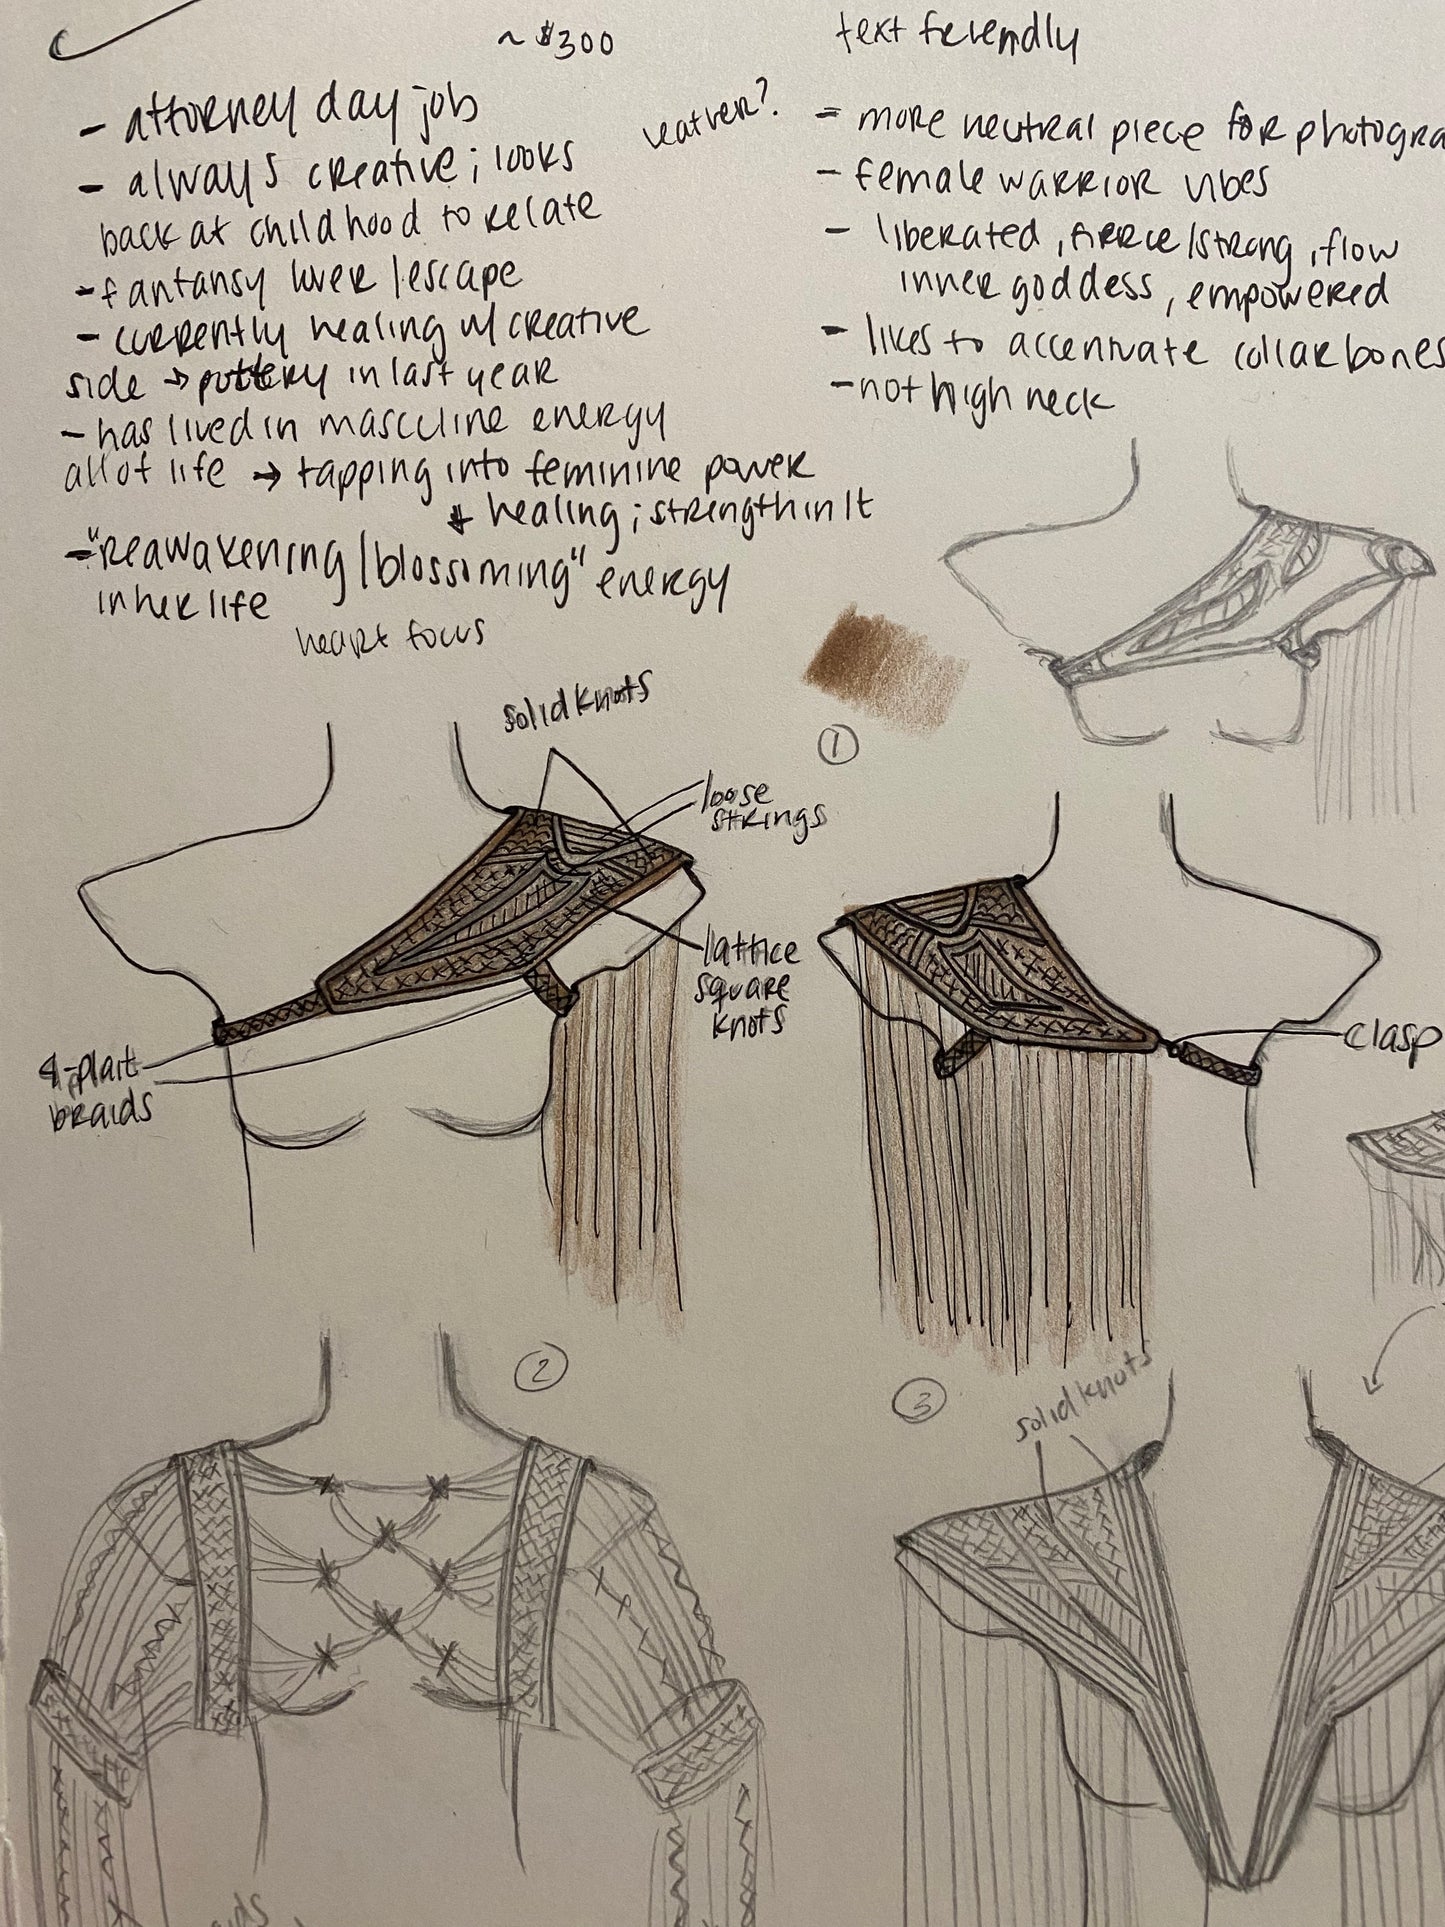 ~ $300
- attorney day job
- always creative; looks
back at childhood to relate
- fantansy lover / escape
- currently healing w/ creative
side → pottery in last year
- has lived in masculine energy
all of life → tapping into feminine power
+ healing; strength in it
- "reawakening / blossoming" energy
in her life
heart focus
leather?
text friendly
- more neutral piece for photogra
- female warrior vibes
- liberated, fierce/strong, flow
inner goddess, empowered
- likes to accentuate collar bones
- not high neck
1
solid knots
loose
strings
lattice
square
knots
4-plait
braids
clasp
2
3
solid knots